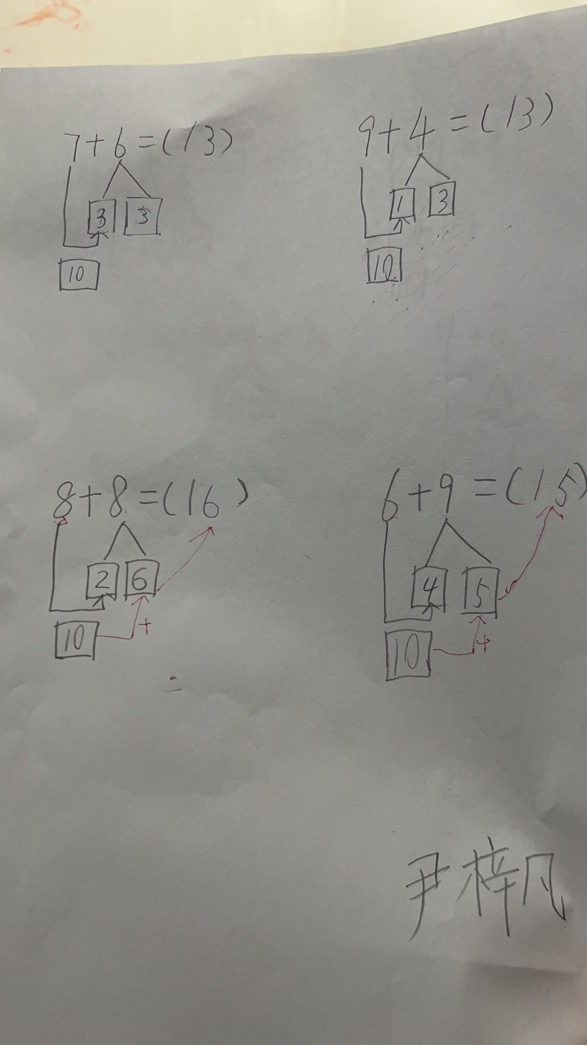 7+6=(13) 9+4=(13)
3 3 1 3
10 10
8+8=(16) 6+9=(15)
2 6 4 5
10 + 10 +
尹梓凡